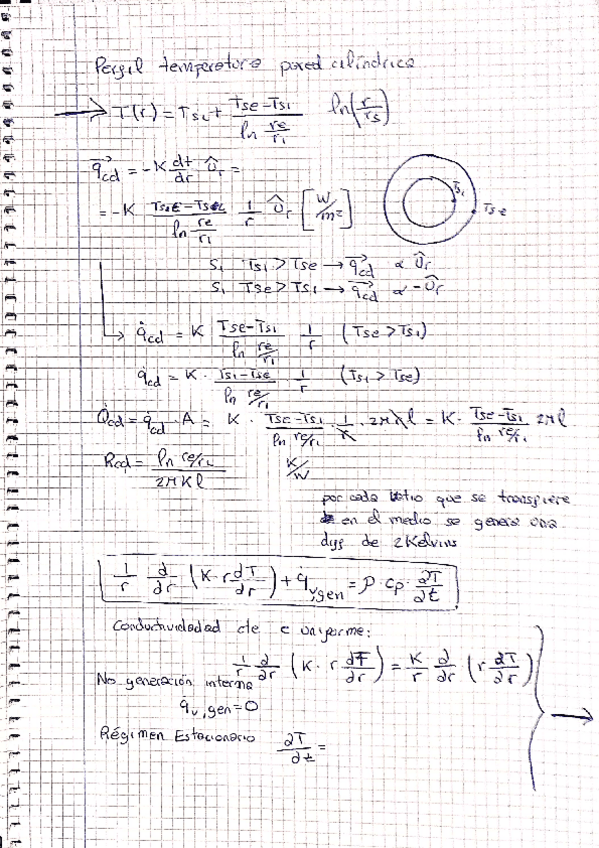 Perfil temperatura pared cilíndrica
→ T(r) = Tsi + (Tse-Tsi)/(ln re/ri) ln(r/rs)
q̇cd = -K dt/dr Ûr =
= -K (Tse-Tsi)/(ln re/ri) 1/r Ûr [W/m²]
Tsi
Tse
Si Tsi > Tse → q̇cd ∝ Ûr
Si Tse > Tsi → q̇cd ∝ -Ûr
q̇cd = K (Tse-Tsi)/(ln re/ri) 1/r (Tse > Tsi)
q̇cd = K · (Tsi-Tse)/(ln re/ri) · 1/r (Tsi > Tse)
Q̇cd = q̇cd · A = K · (Tse-Tsi)/(ln re/ri) · 1/r · 2πrl = K · (Tse-Tsi)/(ln re/ri) 2πl
Rcd = (ln re/ri)/(2πKl) K/W
por cada Watio que se transfiere
en el medio se genera una
de 2 Kelvins
1/r d/dr (K · r dT/dr) + q̇v,gen = ρ · cp · ∂T/∂t
Conductividadad cte e uniforme:
1/r ∂/∂r (K · r ∂T/∂r) = K/r ∂/∂r (r ∂T/∂r)
No generación interna
q̇v,gen = 0
→
Régimen Estacionario ∂T/∂t =